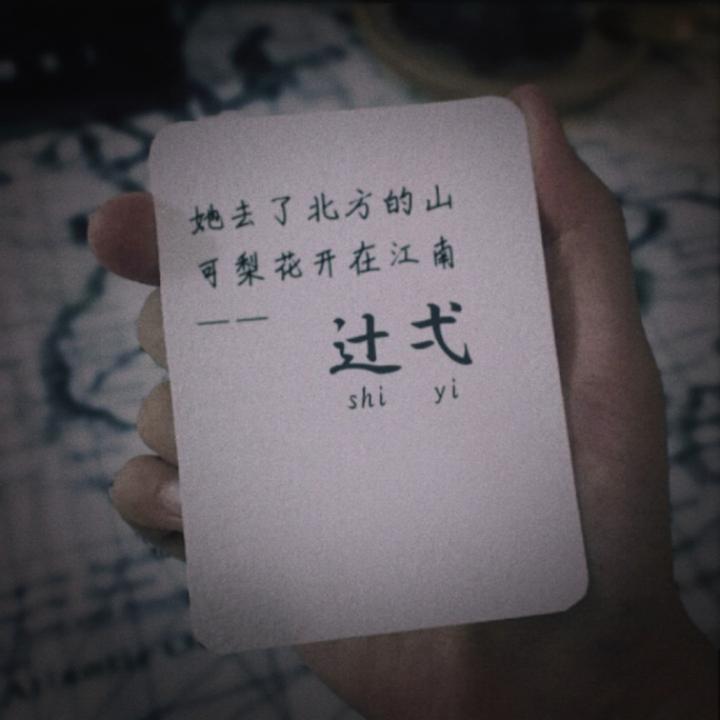 她去了北方的山
可梨花开在江南
—— 辻弌
shi yi